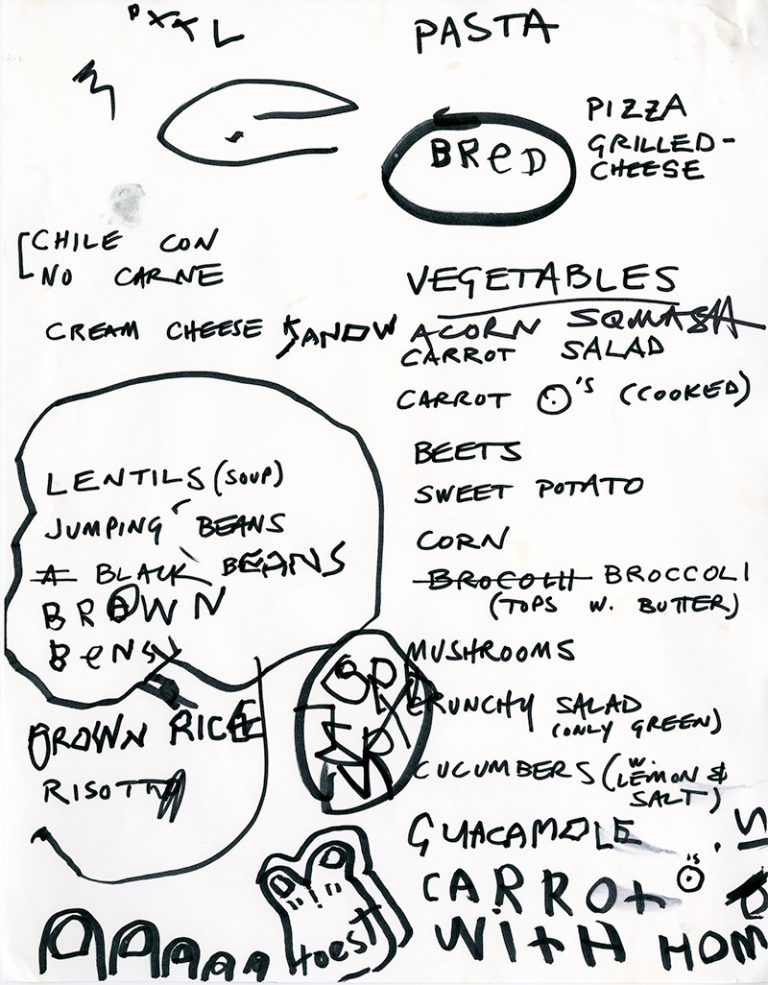 PASTA
BReD
PIZZA
GRILLED-
CHEESE
CHILE CON
NO CARNE
CREAM CHEESE SANDW
VEGETABLES
ACORN SQUASH
CARROT SALAD
CARROT O'S (COOKED)
BEETS
SWEET POTATO
CORN
BROCOLLI BROCCOLI
(TOPS W. BUTTER)
MUSHROOMS
CRUNCHY SALAD
(ONLY GREEN)
CUCUMBERS (W. LEMON &
SALT)
GUACAMOLE
CARROt O'S
WItH HOM
LENTILS (SOUP)
JUMPING BEANS
A BLACK BEANS
BROWN
BeNS
BROWN RICE
RISOTTO
toest